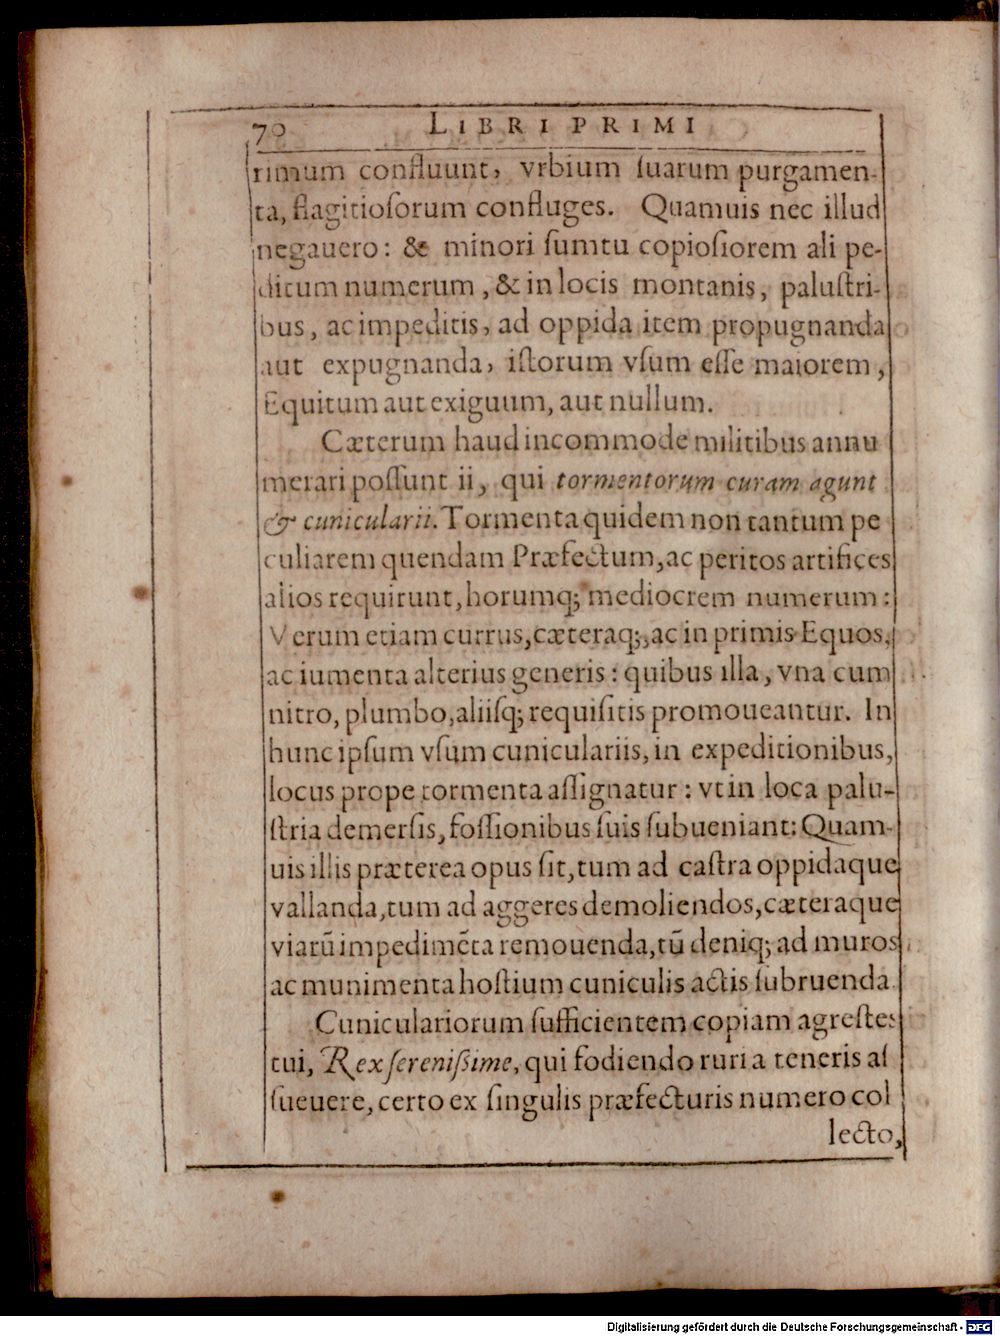 70 LIBRI PRIMI
rimum confluunt, vrbium ſuarum purgamen-
ta, flagitioſorum confluges. Quamuis nec illud
negauero: & minori ſumtu copioſiorem ali pe-
ditum numerum, & in locis montanis, paluſtri-
bus, ac impeditis, ad oppida item propugnanda
aut expugnanda, iſtorum vſum eſſe maiorem,
Equitum aut exiguum, aut nullum.
Cæterum haud incommode militibus annu
merari poſſunt ii, qui tormentorum curam agunt
& cunicularii. Tormenta quidem non tantum pe
culiarem quendam Præfectum, ac peritos artifices
alios requirunt, horumq; mediocrem numerum:
Verum etiam currus, cæteraq;, ac in primis Equos,
ac iumenta alterius generis: quibus illa, vna cum
nitro, plumbo, aliiſq; requiſitis promoueantur. In
hunc ipſum vſum cuniculariis, in expeditionibus,
locus prope tormenta aſſignatur: vt in loca palu-
ſtria demerſis, foſſionibus ſuis ſubueniant: Quam-
uis illis præterea opus ſit, tum ad caſtra oppidaque
vallanda, tum ad aggeres demoliendos, cæteraque
viarū impedimēta remouenda, tū deniq; ad muros
ac munimenta hoſtium cuniculis actis ſubruenda.
Cuniculariorum ſufficientem copiam agreſtes
tui, Rex ſereniſsime, qui fodiendo ruri a teneris aſ
ſueuere, certo ex ſingulis præfecturis numero col
lecto,
Digitalisierung gefördert durch die Deutsche Forschungsgemeinschaft - DFG